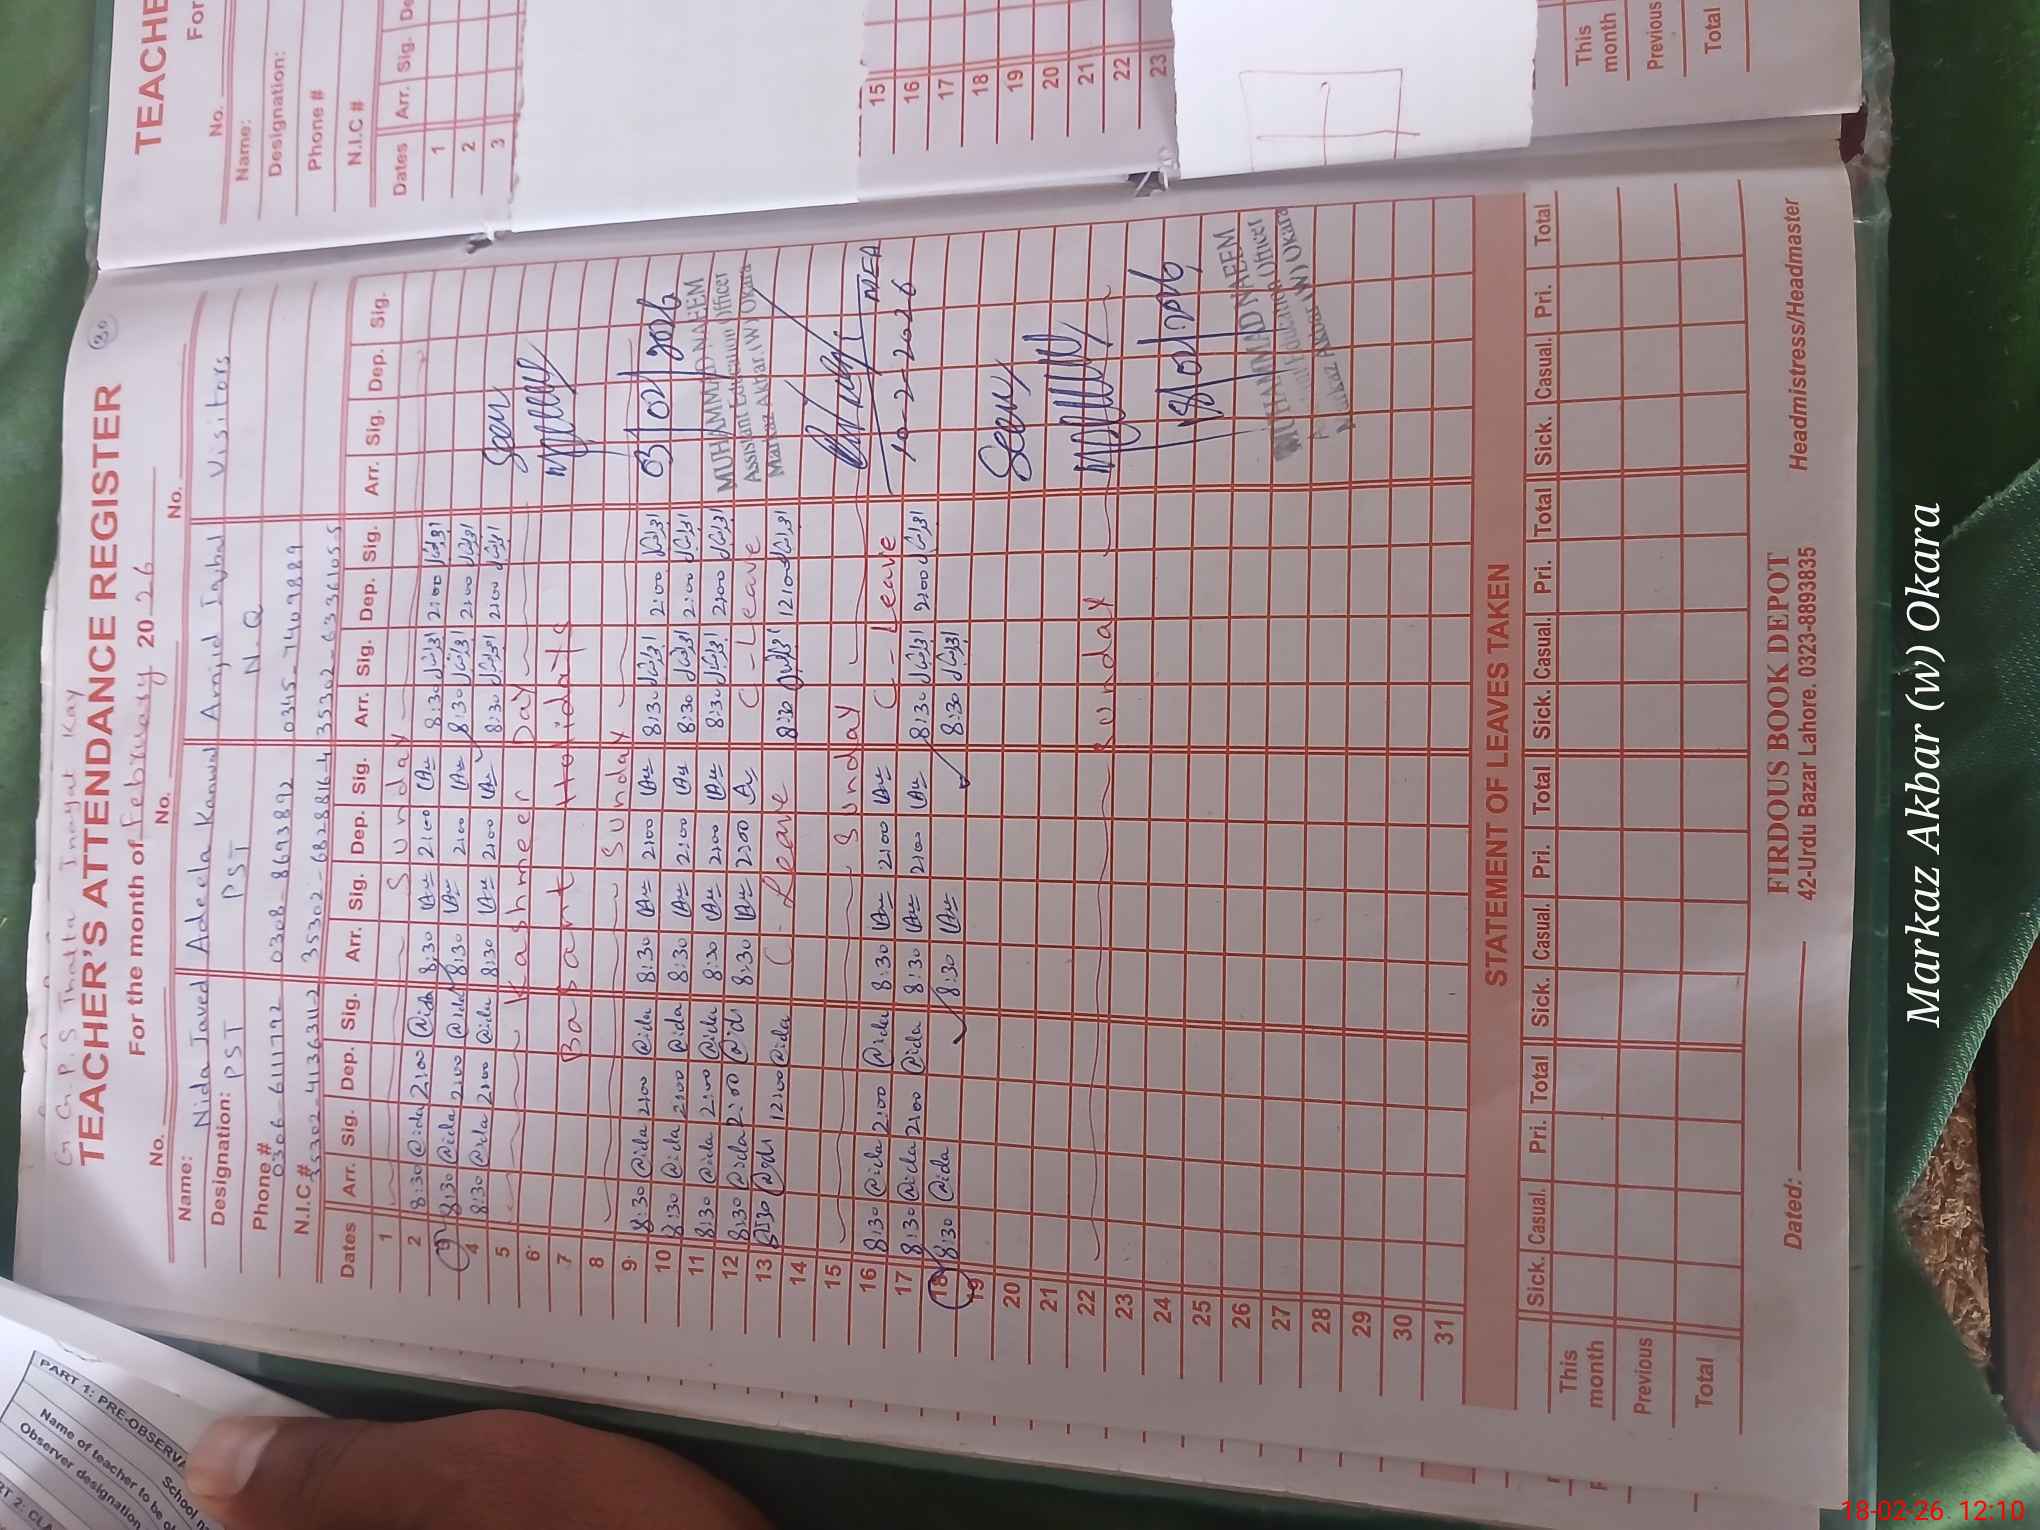 G.G.P.S Thatta Inayat Kay
TEACHER'S ATTENDANCE REGISTER
For the month of February 2026
No. No. No.
Name: Nida Javed Adeela Kanwal Amjid Iqbal Visitors
Designation: PST PST N.Q
Phone # 0306-6111792 0308-8693892 0345-7409889
N.I.C #
Dates Arr. Sig. Dep. Sig. Arr. Sig. Dep. Sig. Arr. Sig. Dep. Sig. Arr. Sig. Dep. Sig.
1 Sunday
2 8:30 @ida 2:00 @ida 8:30 2:00 8:30 2:00
3 8:30 @ida 2:00 @ida 8:30 2:00 8:30 2:00
4 8:30 @ida 2:00 @ida 8:30 2:00 8:30 2:00 Seen
5 Kashmeer Day
6
7 Basant Holidats
8 Sunday
9 8:30 @ida 2:00 @ida 8:30 2:00 8:30 2:00 03/02/2026
10 8:30 @ida 2:00 @ida 8:30 2:00 8:30 2:00
11 8:30 @ida 2:00 @ida 8:30 2:00 8:30 2:00
MUHAMMAD NAEEM
Assistant Education Officer
Markaz Akbar (W) Okara
12 8:30 @ida 2:00 8:30 2:00 C-Leave
13 8:30 12:00 @ida C-Leave 8:30 12:00
14
15 Sunday
16 8:30 @ida 2:00 @ida 8:30 2:00 C-Leave
17 8:30 @ida 2:00 @ida 8:30 2:00 8:30 2:00 10-2-2026
18 8:30 @ida 8:30 8:30
19
20 Seen
21
22 Sunday
23
24 18/02/2026
25
26
MUHAMMAD NAEEM
Assistant Education Officer
Markaz Akbar (W) Okara
27
28
29
30
31
STATEMENT OF LEAVES TAKEN
Sick. Casual. Pri. Total Sick. Casual. Pri. Total Sick. Casual. Pri. Total Sick. Casual. Pri. Total
This month
Previous
Total
Dated:
FIRDOUS BOOK DEPOT
42-Urdu Bazar Lahore. 0323-8893835
Headmistress/Headmaster
TEACHE
For
No.
Name:
Designation:
Phone #
N.I.C #
Dates Arr. Sig. De
1
2
3
15
16
17
18
19
20
21
22
23
This month
Previous
Total
PART 1: PRE-OBSERVA
School
Name of teacher to be
Observer designation
Markaz Akbar (w) Okara
18-02-26 12:10